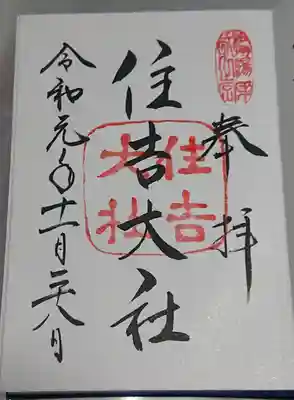 奉拝
住吉大社
住吉
大社
令和元年十一月二十八日